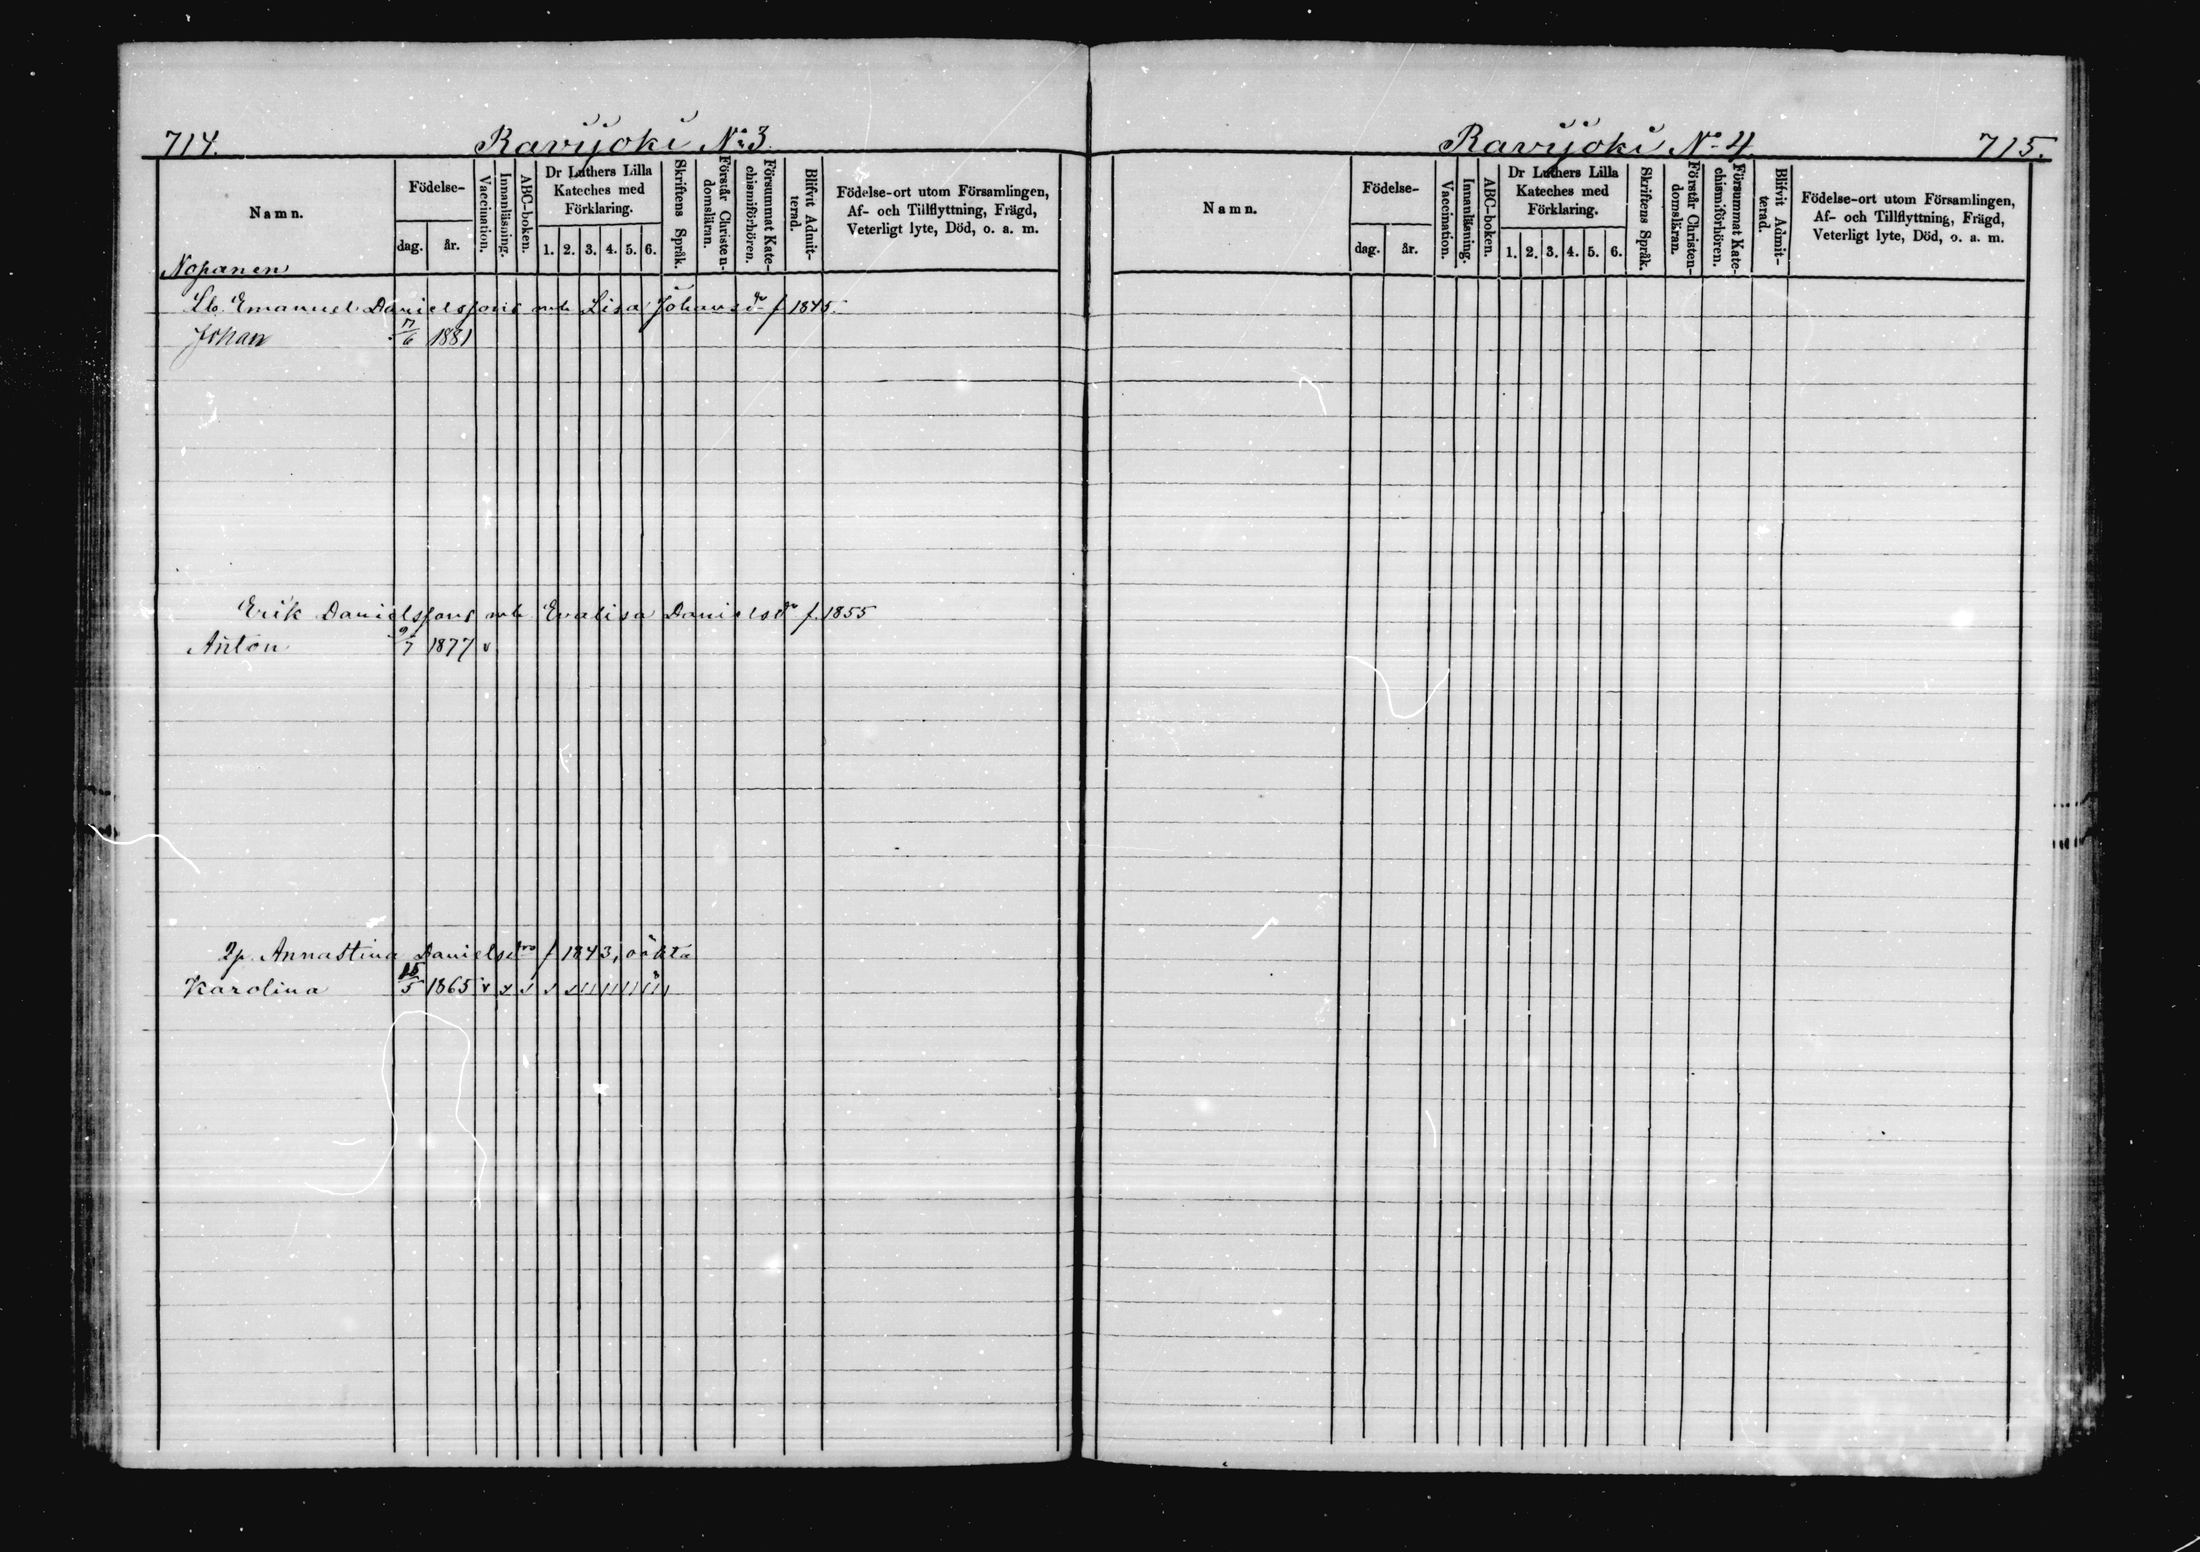 714. Ravijoki No 3.
Namn.
Födelse-
dag. år.
Vaccination.
Innanläsning.
ABC-boken.
Dr Luthers Lilla
Kateches med
Förklaring.
1. 2. 3. 4. 5. 6.
Skriftens Språk.
Förstår Christen-
domsläran.
Försummat Kate-
chismiförhören.
Blifvit Admit-
terad.
Födelse-ort utom Församlingen,
Af- och Tillflyttning, Frägd,
Veterligt lyte, Död, o. a. m.
Nopanen
Lb. Emanuel Danielssons mh Lisa Johansdr f 1845.
Johan 17/6 1881
Erik Danielssons mh Evalisa Danielsdr f. 1855
Anton 9/7 1877 v
Annastina Danielsdrs f 1843, oäkta
Karolina 15/5 1865 v
Ravijoki No 4. 715.
Namn.
Födelse-
dag. år.
Vaccination.
Innanläsning.
ABC-boken.
Dr Luthers Lilla
Kateches med
Förklaring.
1. 2. 3. 4. 5. 6.
Skriftens Språk.
Förstår Christen-
domsläran.
Försummat Kate-
chismiförhören.
Blifvit Admit-
terad.
Födelse-ort utom Församlingen,
Af- och Tillflyttning, Frägd,
Veterligt lyte, Död, o. a. m.